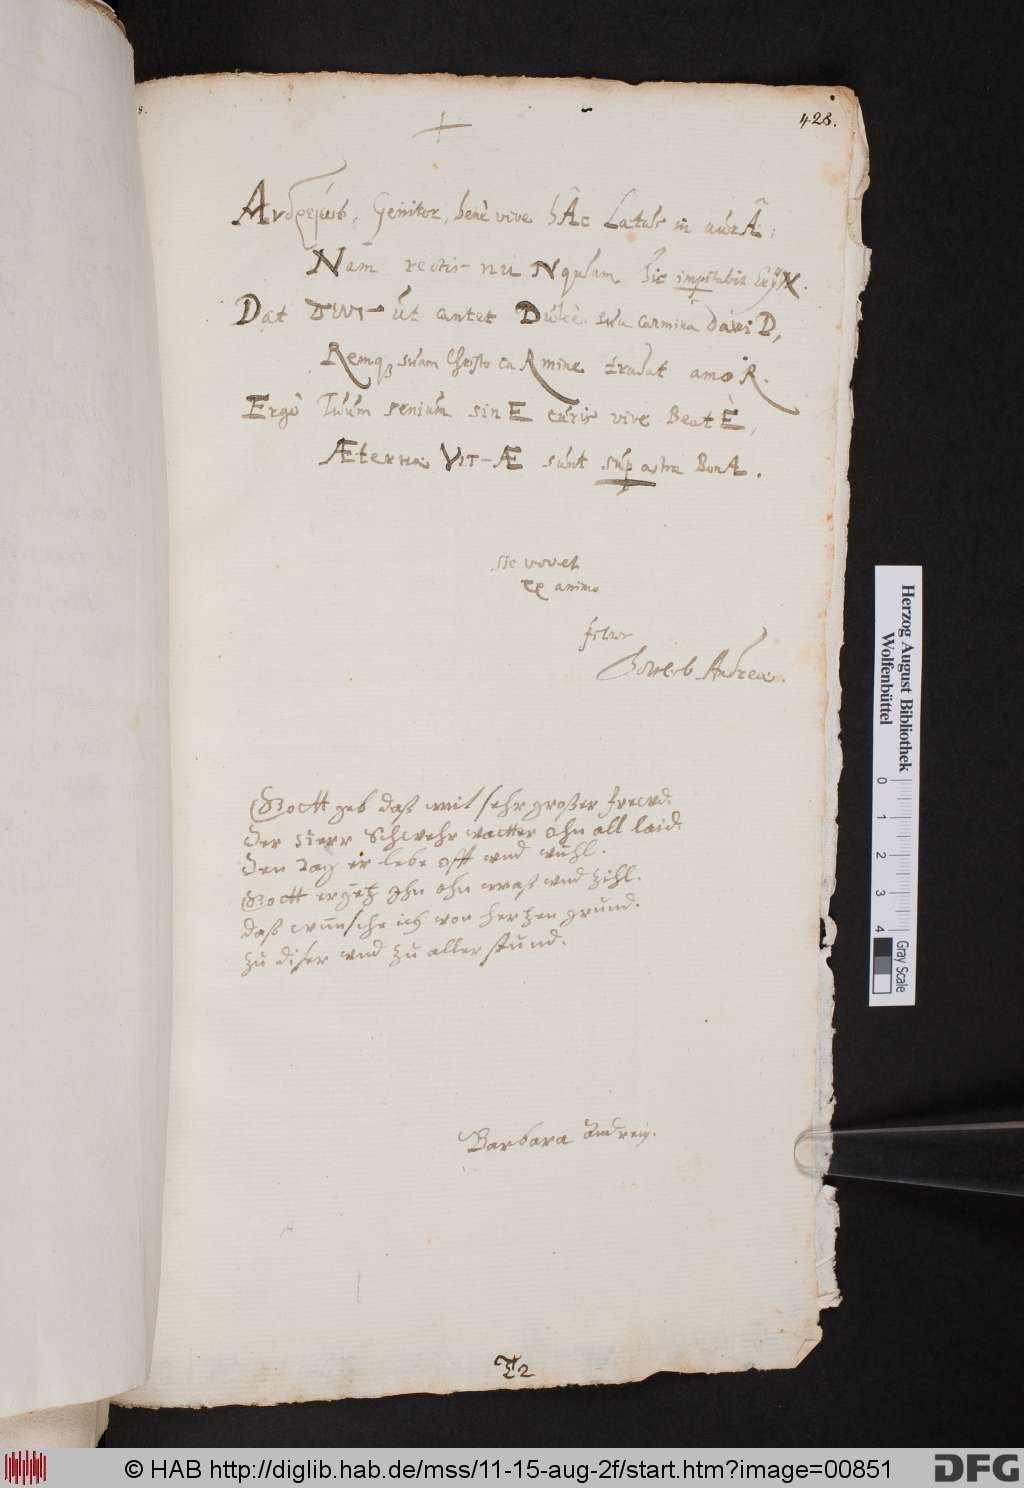 428.
Ανδρείως, Genitor, benè vive hÂc Lætus in aurÂ;
Nam rectis nuNquam sic
Dat ut cantet Dulcè sua carmina daviD,
Remq₃ suam Christo caRmine trudat amoR.
Ergò Tuum senium sinE curis vive BeatÈ,
Æterna VIT-Æ sunt sup astra BonA.
sic vovet
ex animo
filius
Gottlieb Andreæ.
Gott geb daß mit sehr großer frewd.
Der Herr Schwehr vatter ohn all laid.
Den Tag er lebe offt vnd vihl.
Gott ergetz Ihn ohn maß vnd zihl.
daß wünsche ich von hertzen grund.
zu diser vnd zu aller stund.
Barbara Andrein.
T2
Herzog August Bibliothek
Wolfenbüttel
0 1 2 3 4
Gray Scale
© HAB http://diglib.hab.de/mss/11-15-aug-2f/start.htm?image=00851
DFG